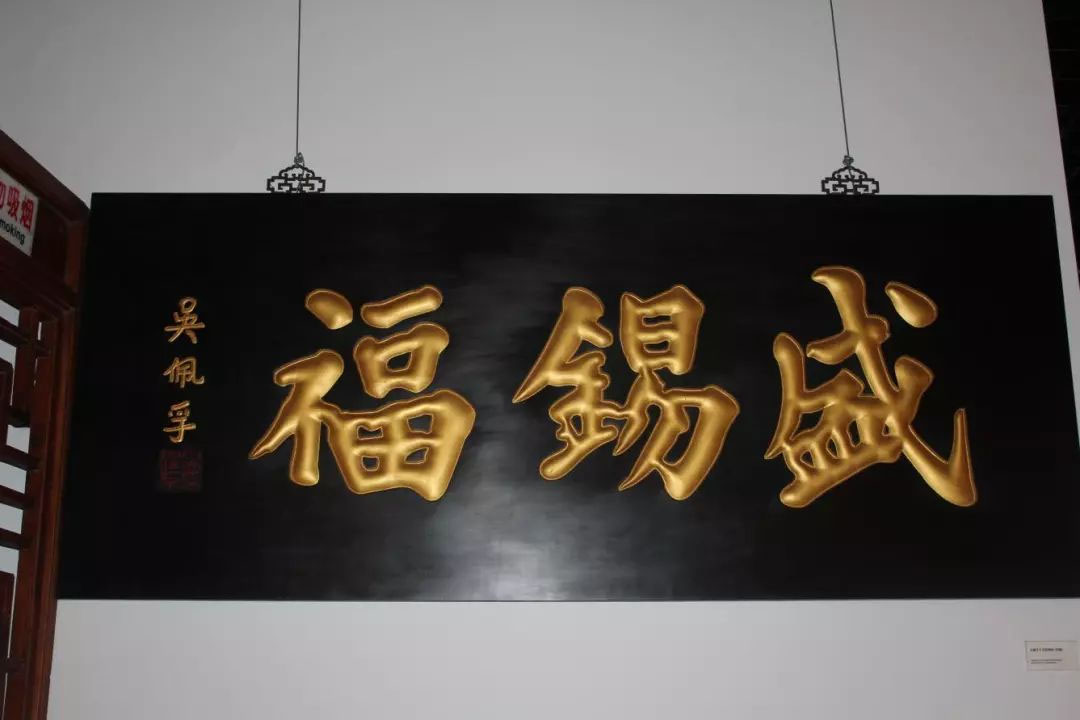 盛錫福
吳佩孚
勿吸烟
moking